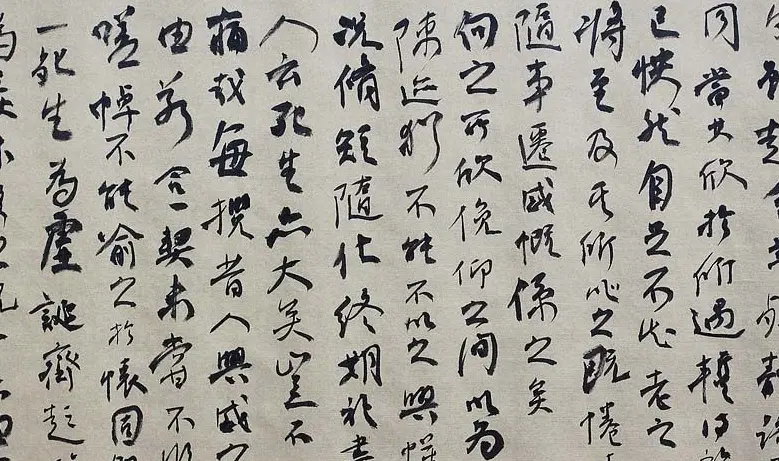 趣舍萬殊靜
同當其欣於所遇輒得
已怏然自足不知老之
將至及其所之既惓
隨事遷感慨係之矣
向之所欣俛仰之間以為
陳迹猶不能不以之興懷
況脩短隨化終期於盡
人云死生亦大矣豈不
痛哉每攬昔人興感之
由若合一契未嘗不臨
嗟悼不能喻之於懷固
一死生為虛誕齊彭